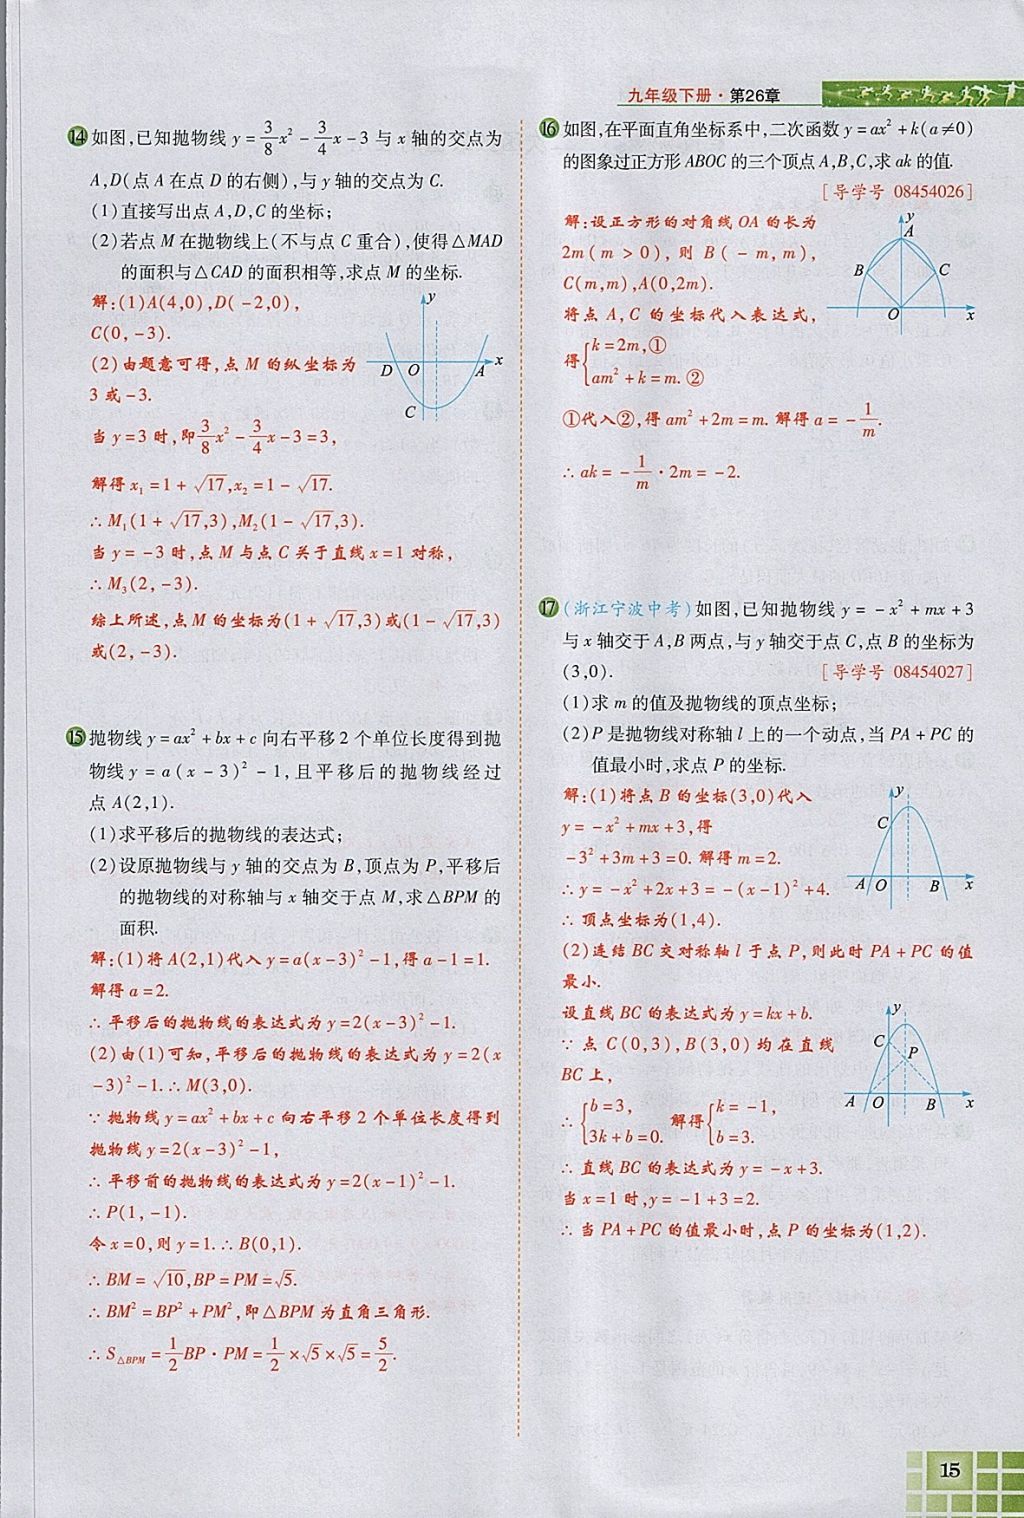 九年级下册·第26章
14 如图,已知抛物线 y=3/8x²-3/4x-3 与 x 轴的交点为
A,D(点 A 在点 D 的右侧),与 y 轴的交点为 C.
(1)直接写出点 A,D,C 的坐标;
(2)若点 M 在抛物线上(不与点 C 重合),使得△MAD
的面积与△CAD 的面积相等,求点 M 的坐标.
解:(1)A(4,0),D(-2,0),
C(0,-3).
(2)由题意可得,点 M 的纵坐标为
3 或-3.
当 y=3 时,即3/8x²-3/4x-3=3,
解得 x₁=1+√17,x₂=1-√17.
∴M₁(1+√17,3),M₂(1-√17,3).
当 y=-3 时,点 M 与点 C 关于直线 x=1 对称,
∴M₃(2,-3).
综上所述,点 M 的坐标为(1+√17,3)或(1-√17,3)
或(2,-3).
y
D O A x
C
15 抛物线 y=ax²+bx+c 向右平移 2 个单位长度得到抛
物线 y=a(x-3)²-1,且平移后的抛物线经过
点 A(2,1).
(1)求平移后的抛物线的表达式;
(2)设原抛物线与 y 轴的交点为 B,顶点为 P,平移后
的抛物线的对称轴与 x 轴交于点 M,求△BPM 的
面积.
解:(1)将 A(2,1)代入 y=a(x-3)²-1,得 a-1=1.
解得 a=2.
∴平移后的抛物线的表达式为 y=2(x-3)²-1.
(2)由(1)可知,平移后的抛物线的表达式为 y=2(x
-3)²-1.∴M(3,0).
∵抛物线 y=ax²+bx+c 向右平移 2 个单位长度得到
抛物线 y=2(x-3)²-1,
∴平移前的抛物线的表达式为 y=2(x-1)²-1.
∴P(1,-1).
令 x=0,则 y=1.∴B(0,1).
∴BM=√10,BP=PM=√5.
∴BM²=BP²+PM²,即△BPM 为直角三角形.
∴S△BPM=1/2BP·PM=1/2×√5×√5=5/2.
16 如图,在平面直角坐标系中,二次函数 y=ax²+k(a≠0)
的图象过正方形 ABOC 的三个顶点 A,B,C,求 ak 的值.
[导学号 08454026]
解:设正方形的对角线 OA 的长为
2m(m>0),则 B(-m,m),
C(m,m),A(0,2m).
将点 A,C 的坐标代入表达式,
得{k=2m,①
am²+k=m.②
①代入②,得 am²+2m=m.解得 a=-1/m.
∴ak=-1/m·2m=-2.
y
A
B C
O x
17 (浙江宁波中考)如图,已知抛物线 y=-x²+mx+3
与 x 轴交于 A,B 两点,与 y 轴交于点 C,点 B 的坐标为
(3,0).
[导学号 08454027]
(1)求 m 的值及抛物线的顶点坐标;
(2)P 是抛物线对称轴 l 上的一个动点,当 PA+PC 的
值最小时,求点 P 的坐标.
解:(1)将点 B 的坐标(3,0)代入
y=-x²+mx+3,得
-3²+3m+3=0.解得 m=2.
∴y=-x²+2x+3=-(x-1)²+4.
∴顶点坐标为(1,4).
y
C
A O B x
(2)连结 BC 交对称轴 l 于点 P,则此时 PA+PC 的值
最小.
设直线 BC 的表达式为 y=kx+b.
∵点 C(0,3),B(3,0)均在直线
BC 上,
∴{b=3, 解得{k=-1,
3k+b=0. b=3.
∴直线 BC 的表达式为 y=-x+3.
当 x=1 时,y=-1+3=2.
∴当 PA+PC 的值最小时,点 P 的坐标为(1,2).
y
C
P
A O B x
15